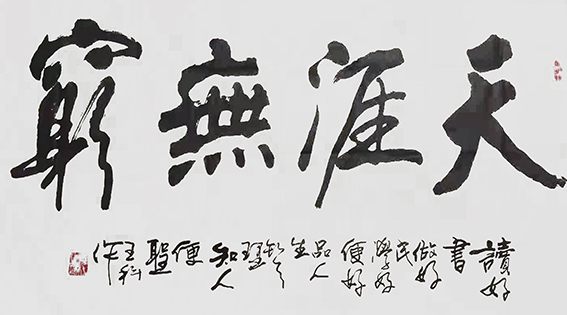 天涯無窮
讀好
書
做好
民
學好
便好
品人
生
理
知人
便
聖
王科
作